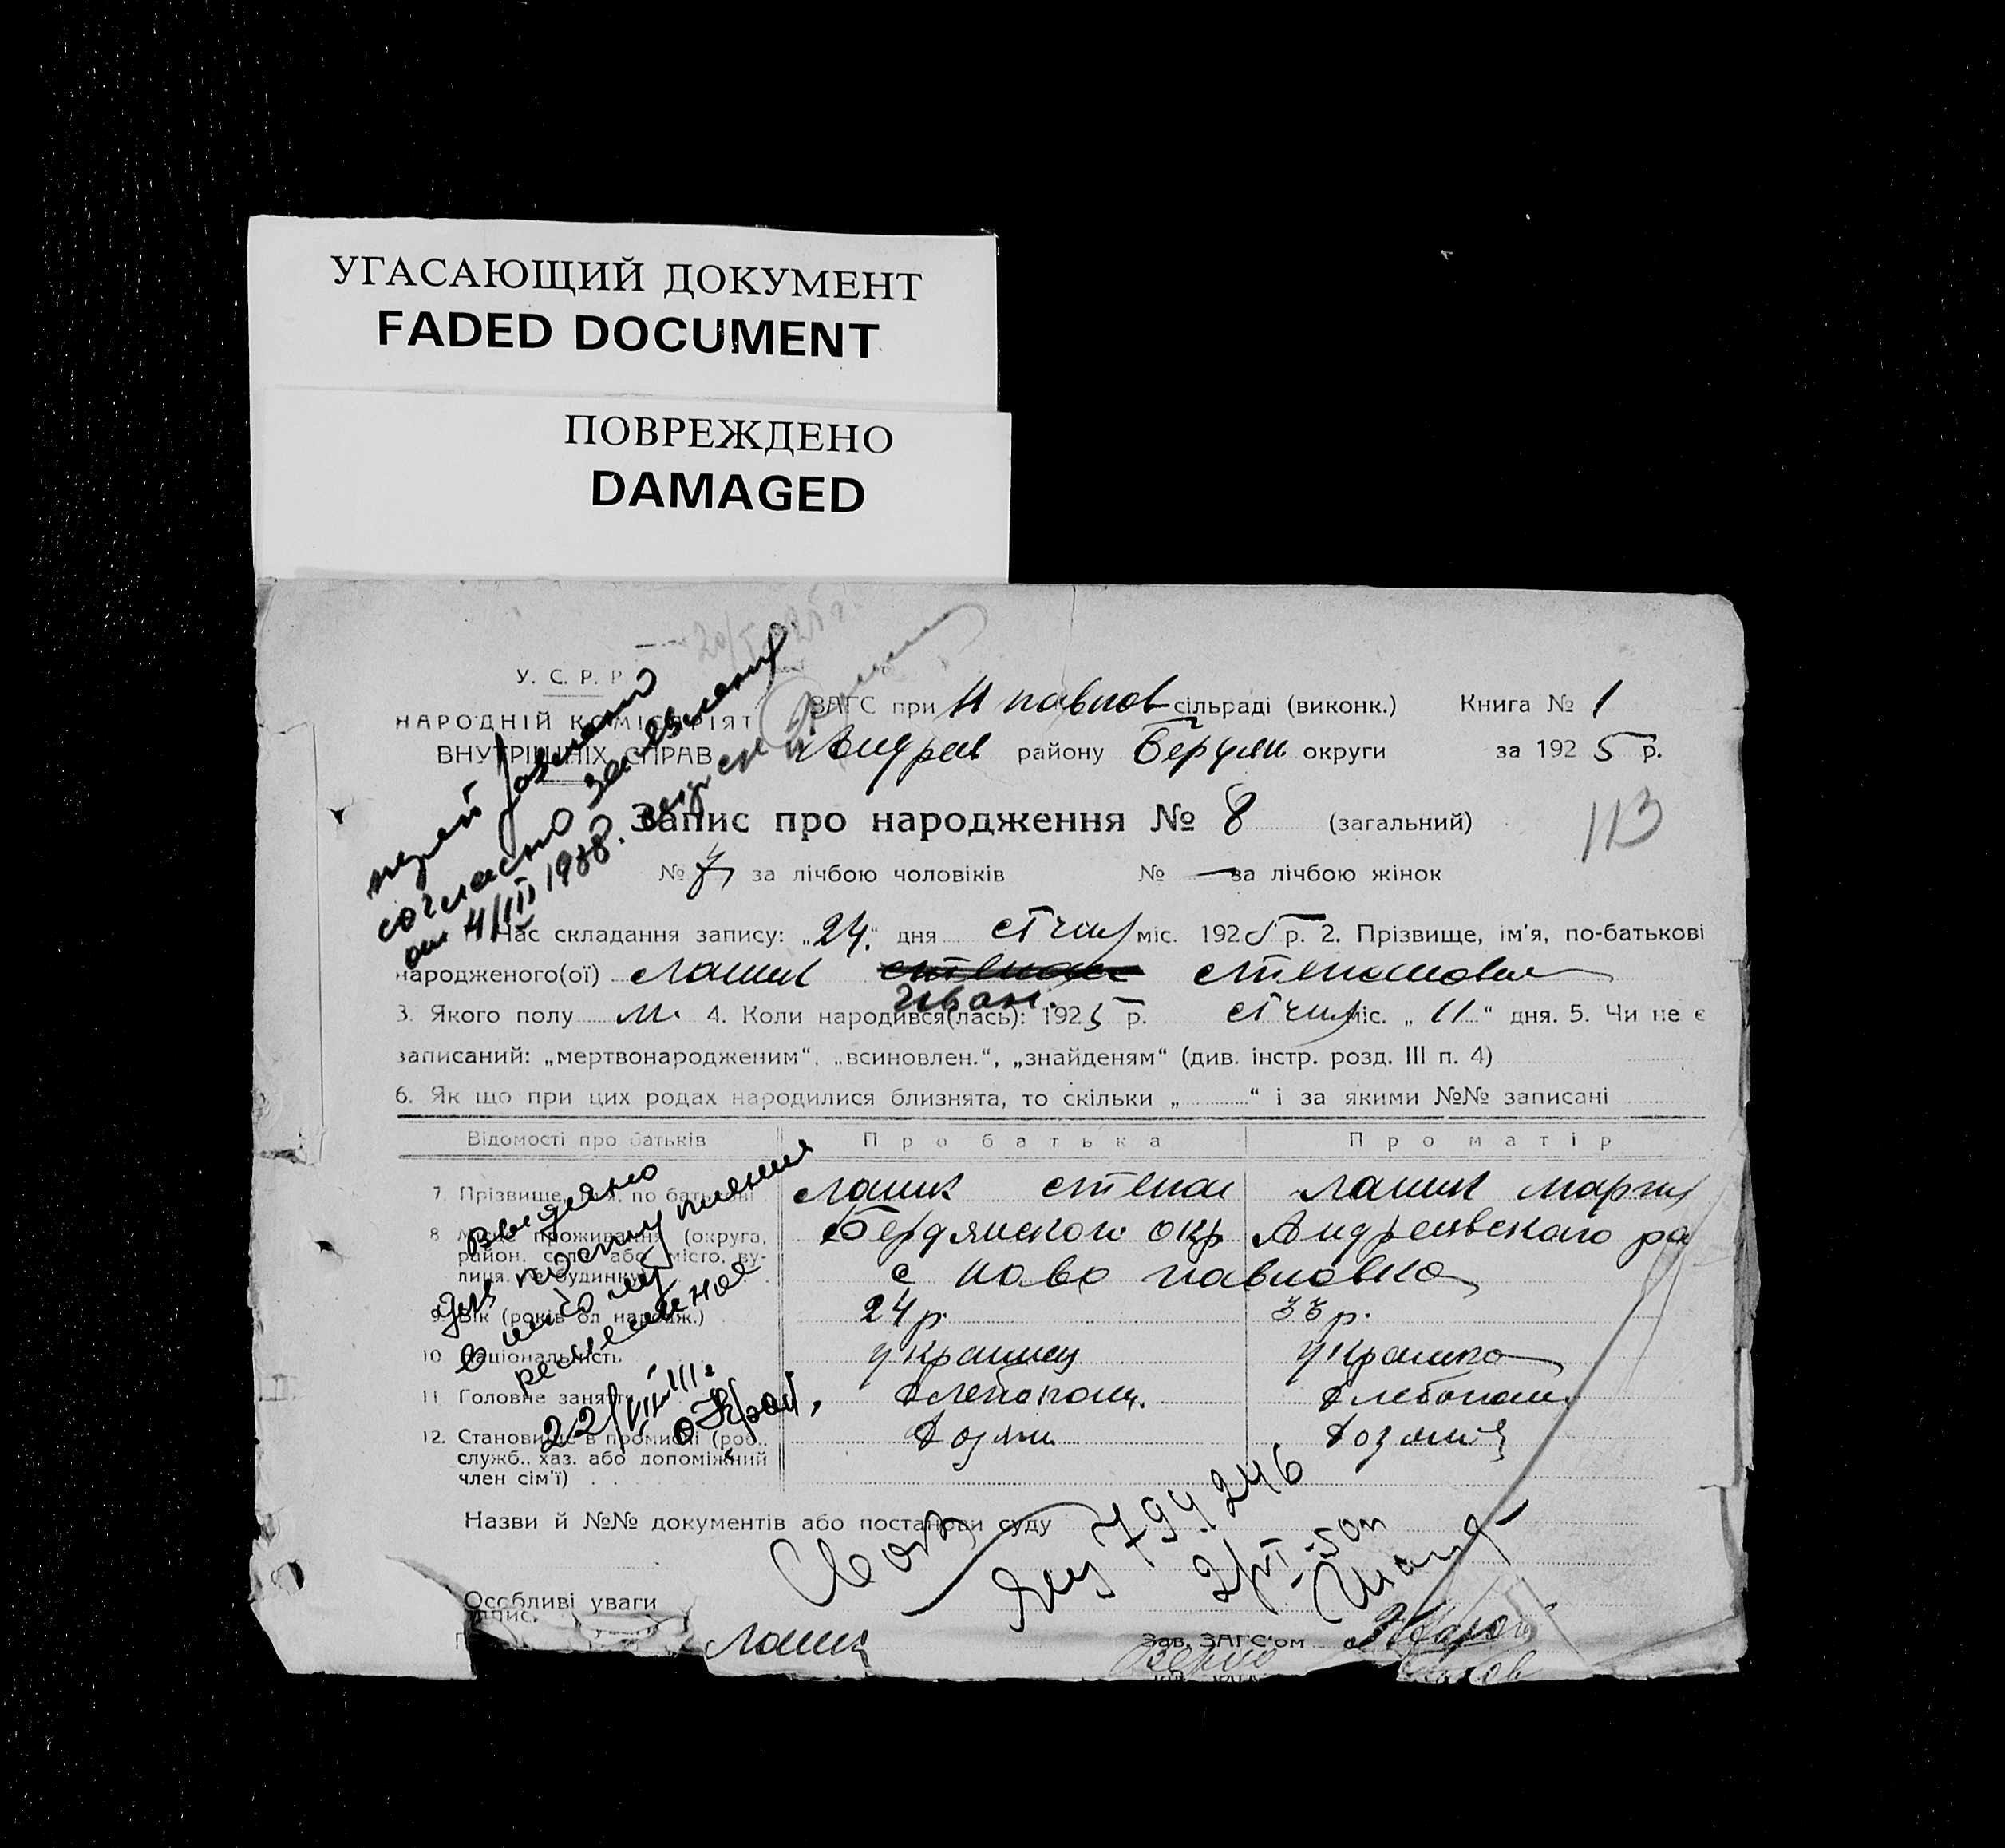 УГАСАЮЩИЙ ДОКУМЕНТ
FADED DOCUMENT
ПОВРЕЖДЕНО
DAMAGED
У. С. Р. Р.
НАРОДНІЙ КОМІСАРІЯТ
ВНУТРІШНІХ СПРАВ
ЗАГС при Н павлов сільраді (виконк.) Книга № 1
Андреев району Бердян округи за 1925 р.
Запис про народження № 8 (загальний)
113
№ 7 за лічбою чоловіків № — за лічбою жінок
согласно заявления
от 4/III 1938.
Час складання запису: „24" дня січня міс. 1925 р. 2. Прізвище, ім'я, по-батькові
народженого(ої) Лашик Степан Степанович
Иван.
3. Якого полу м. 4. Коли народився(лась): 1925 р. січня міс. „11" дня. 5. Чи не є
записаний: „мертвонародженим", „всиновлен.", „знайденям" (див. інстр. розд. III п. 4)
6. Як що при цих родах народилися близнята, то скільки „ " і за якими №№ записані
Відомості про батьків Про батька Про матір
7. Прізвище, ім'я, по батькові Лашик Степан Лашик Мария
8. Місце проживання (округа, район, село або місто, вулиця, № будинку) Бердянского окр Андреевского ра
с Ново павловка
9. Вік (років од народж.) 24 р. 33 р.
10. Національність украинец украинка
11. Головне заняття Хлебопаш. Хлебопаш.
12. Становище в промислі (роб., служб., хаз. або допоміжний член сім'ї) Хозяин Хозяйка
выдано
22/VIII
Назви й №№ документів або постанови суду
794246
Особливі уваги
Лашик Зав. ЗАГС'ом
Верно